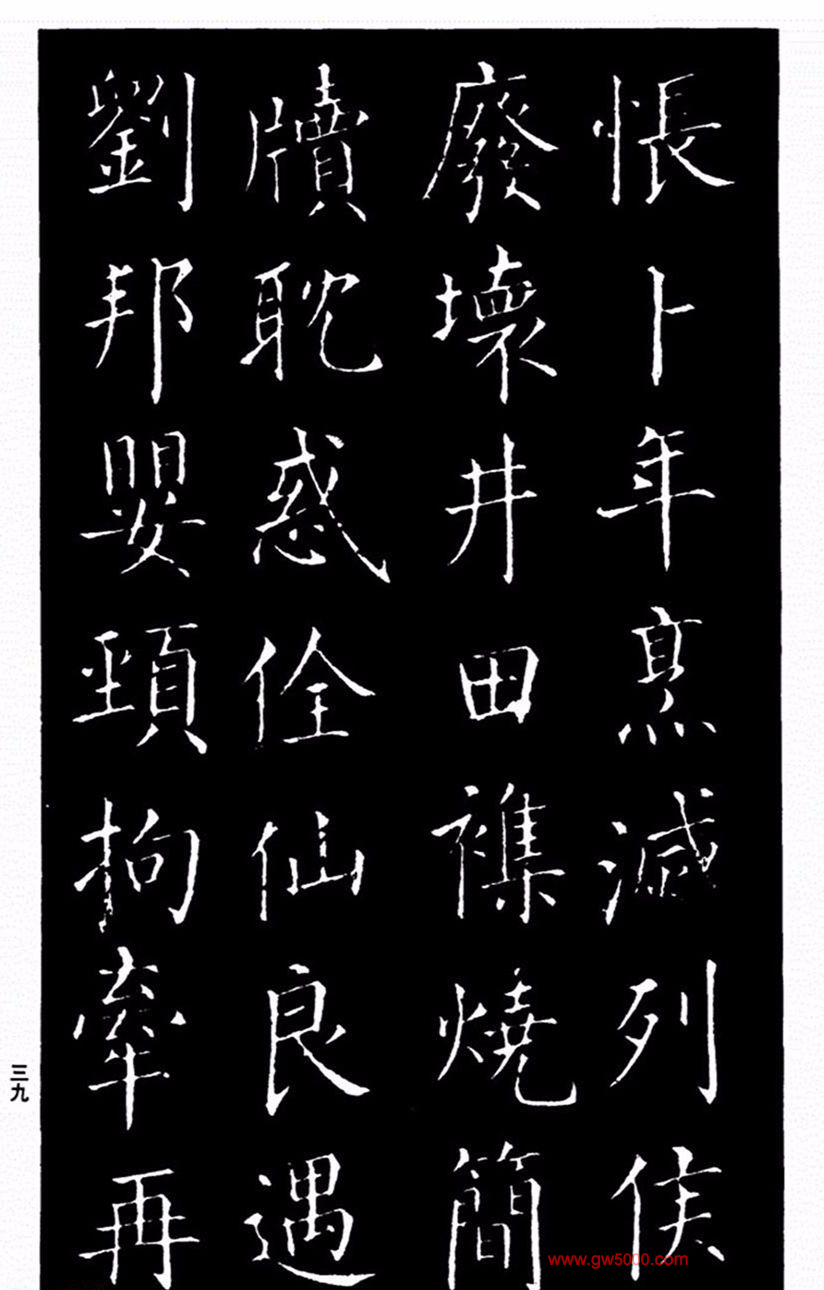 悵卜年烹滅列侯
廢壞井田襍燒簡
牘耽惑佺仙良遇
劉邦嬰頸拘牽再
三九
www.gw5000.com